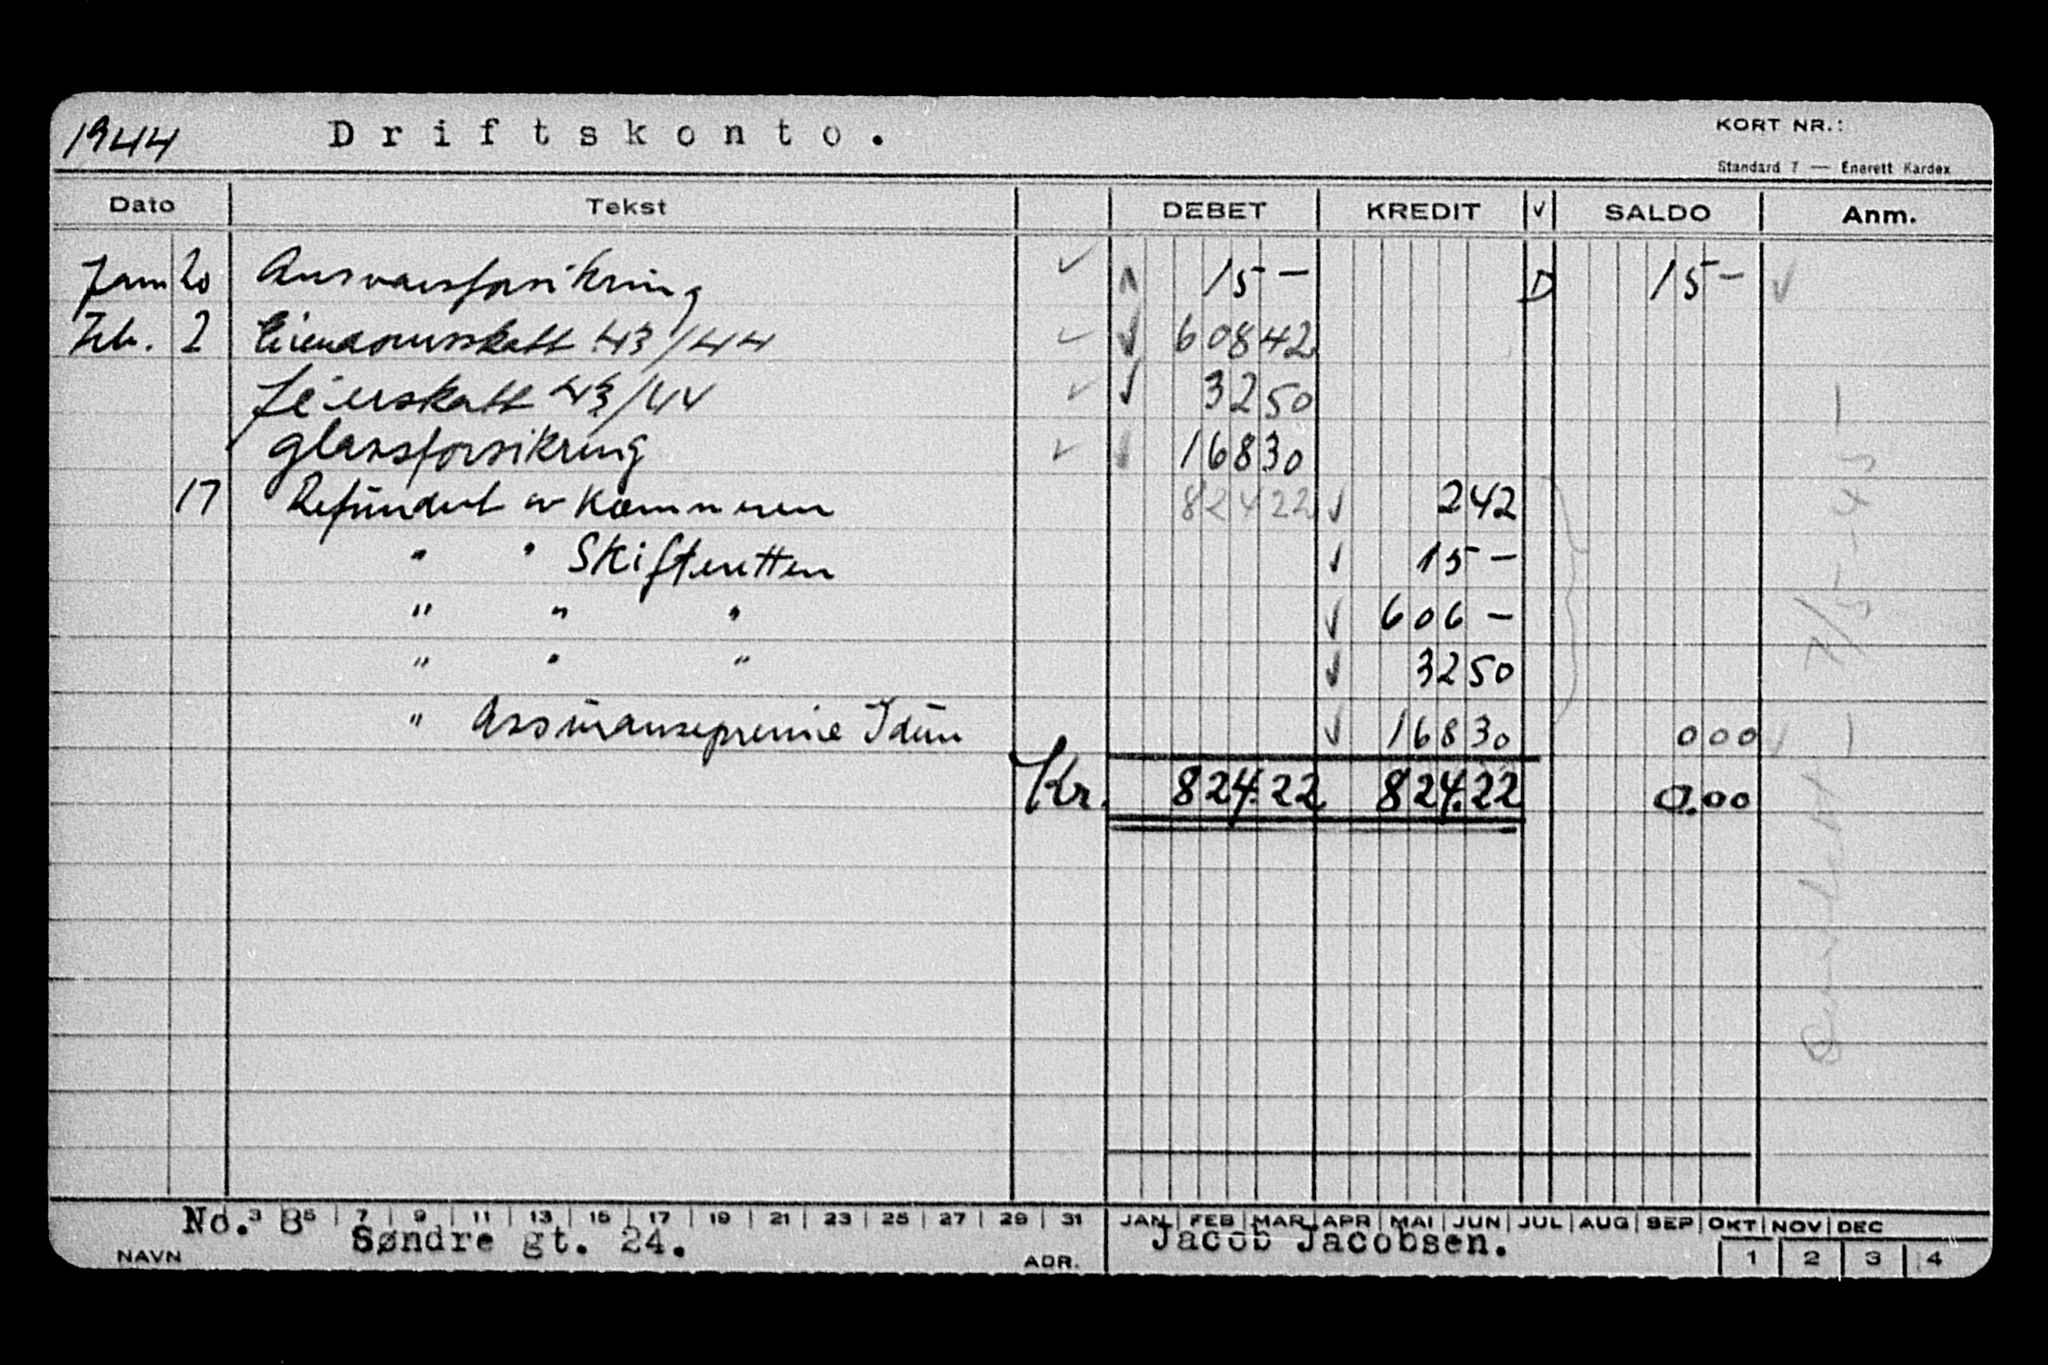 1944 Driftskonto. KORT NR.:
Standard 7 — Enerett Kardex
Dato Tekst DEBET KREDIT √ SALDO Anm.
Jan 20 Ansvarsforsikring ✓ 15 — D 15 — ✓
Feb. 2 Eiendomsskatt 43/44 ✓ ✓ 608 42
Feierskatt 43/44 ✓ ✓ 32 50
Glassforsikring ✓ ✓ 168 30
17 Refundert av Kæmneren 824 22 ✓ 2 42
" " Skifteretten ✓ 15 —
" " " ✓ 606 —
" " " ✓ 32 50
" Assuransepremie Idun ✓ 168 30 0 00 ✓
Kr. 824.22 824.22 0.00
7/5-45
No. 8 3 5 7 9 11 13 15 17 19 21 23 25 27 29 31 JAN FEB MAR APR MAI JUN JUL AUG SEP OKT NOV DEC
Søndre gt. 24. Jacob Jacobsen.
NAVN ADR. 1 2 3 4